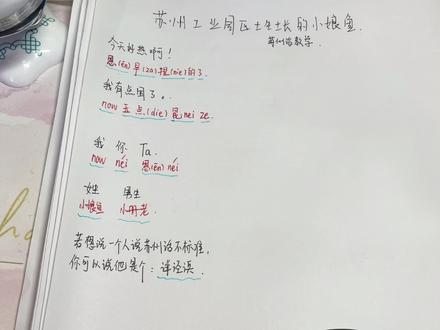 苏州工业园区土生土长的小娘鱼.
苏州话教学.
今天好热啊!
恩(ēn)早(zao)捏(nie)的了.
我有点困了。
now 五点(die)昆nei ze.
我 你 Ta.
now néi 恩(ēn) néi
女生 男生
小娘鱼 小册老.
若想说一个人说苏州话不标准,
你可以说他是个:洋泾浜.